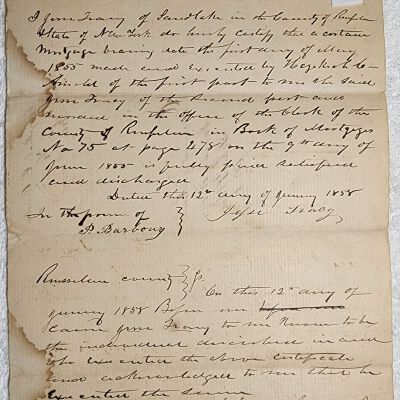 I Jesse Tracy of Sandlake in the County of Renselaer
State of New York do hereby certify that a certain
Mortgage bearing date the first day of May
1855 made and executed by Hezekiah
Arnold of the first part to me the said
Jesse Tracy of the second part and
recorded in the Office of the Clerk of the
County of Renselaer in Book of Mortgages
No 75 at page 478 on the 9th day of
June 1855 is fully paid satisfied
and discharged
Dated this 12th day of 1858
In the of
P. Barbour
Jesse Tracy
county ss.
On this 12th day of
1858 Before me
Came Jesse Tracy to me Known to be
the individual described in and
who executed the above certificate
and acknowledged to me that he
executed the same